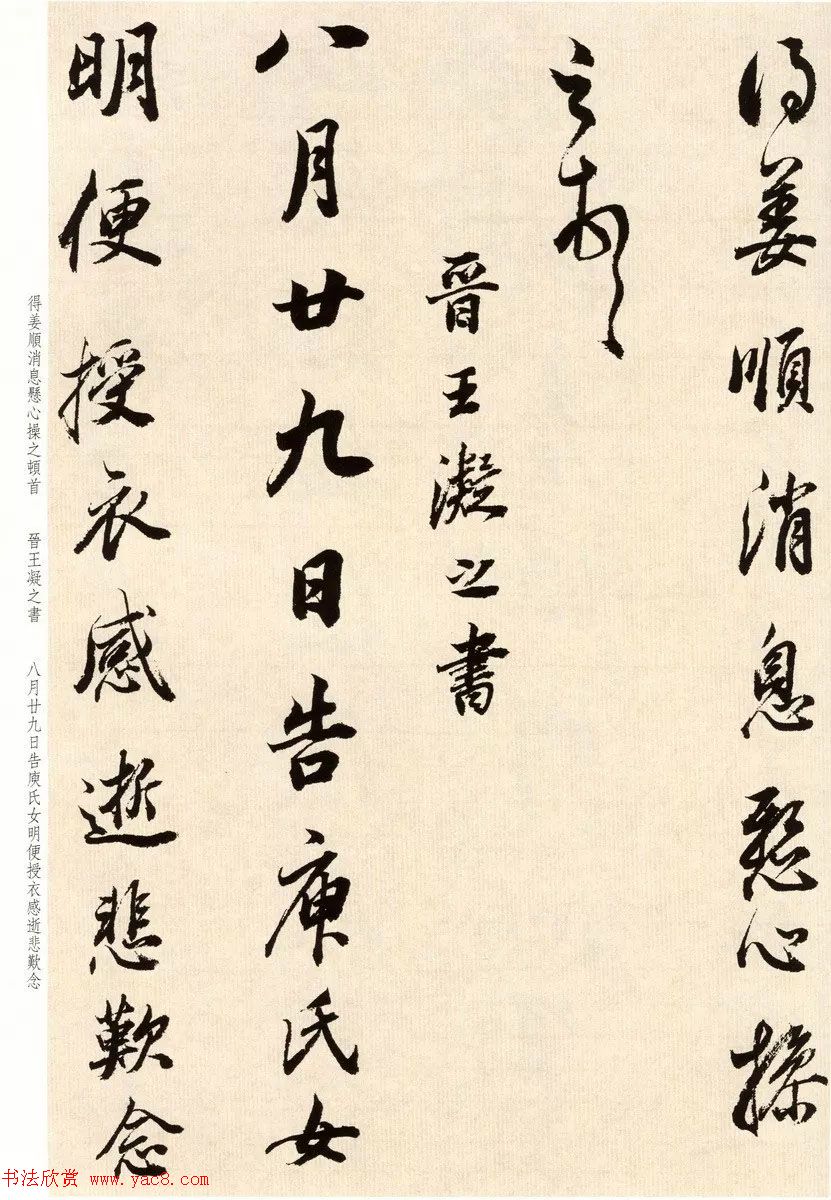 得姜順消息懸心操
之頓首
晉王凝之書
八月廿九日告庾氏女
明便授衣感逝悲歎念
得姜順消息懸心操之頓首　晉王凝之書　八月廿九日告庾氏女明便授衣感逝悲歎念
书法欣赏 www.yac8.com